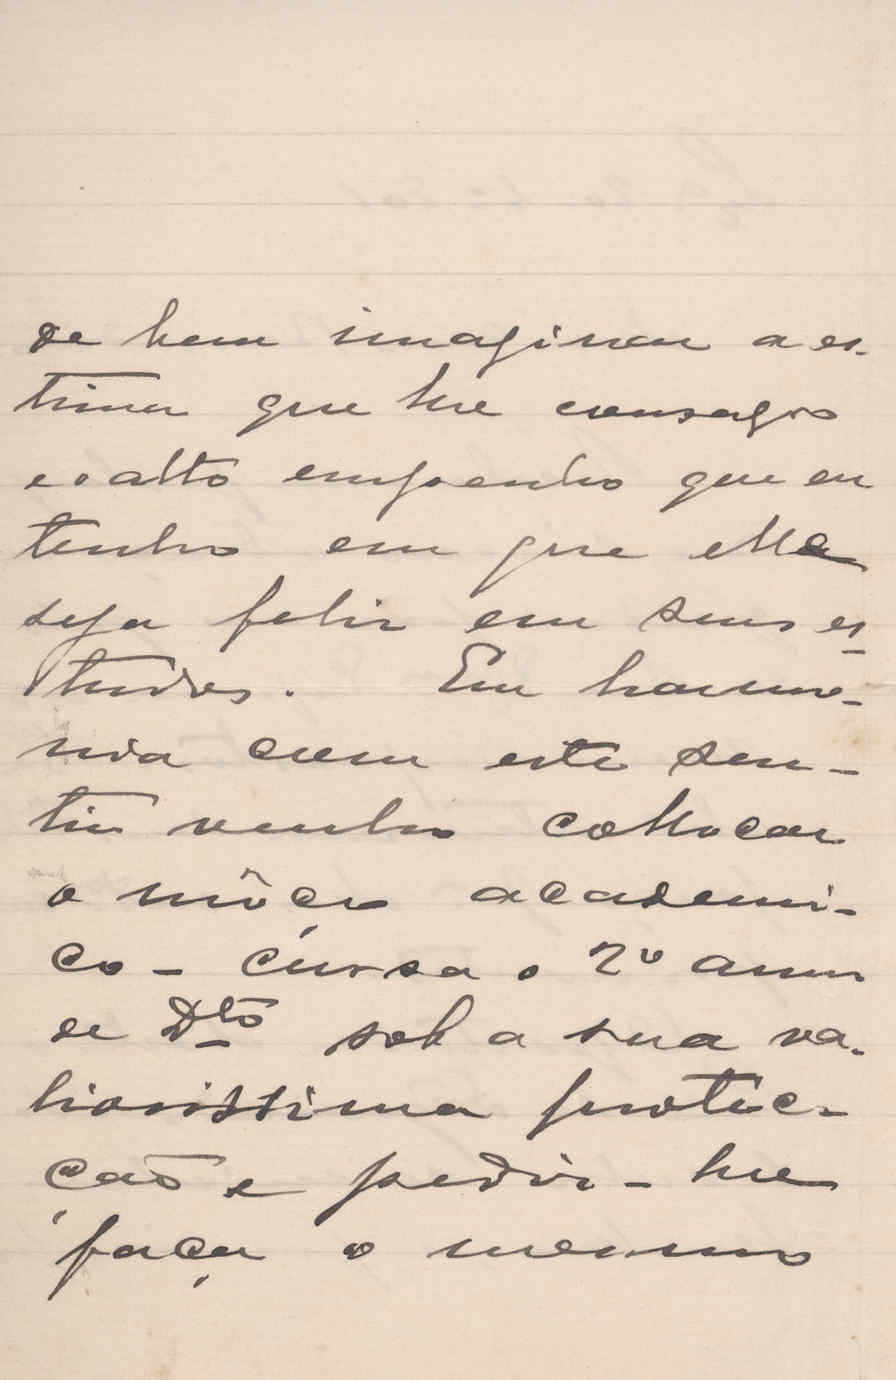 de bem imaginar a es-
tima que lhe consagro
e o alto empenho que eu
tenho em que elle
seja feliz em seus es-
tudos. Em harmo-
nia com este sen-
tir venho collocar
o môço academi-
co - cursa o 2º anno
de Dto sob a sua va-
liosissima protec-
ção e pedir-lhe
faça o mesmo